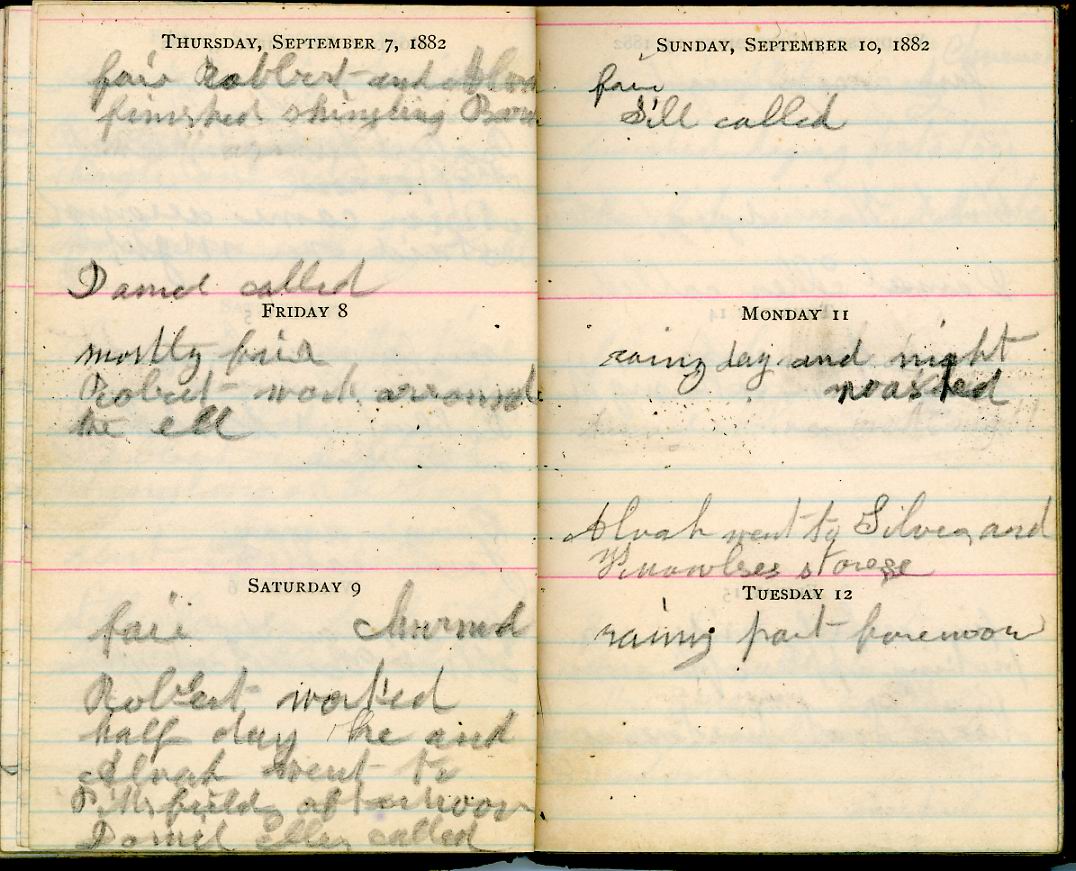 THURSDAY, SEPTEMBER 7, 1882
fair Robbert and Alva
finished shingling Barn
Daniel called
FRIDAY 8
mostly fair
Robert work arround
the ell
SATURDAY 9
fair Churned
Robert worked
half day he and
Alvah went to
Pittsfield afternoon
Daniel called
SUNDAY, SEPTEMBER 10, 1882
fair
Sill called
MONDAY 11
rainy day and night
washed
Alvah went to and
Knowlses
TUESDAY 12
rainy part forenoon